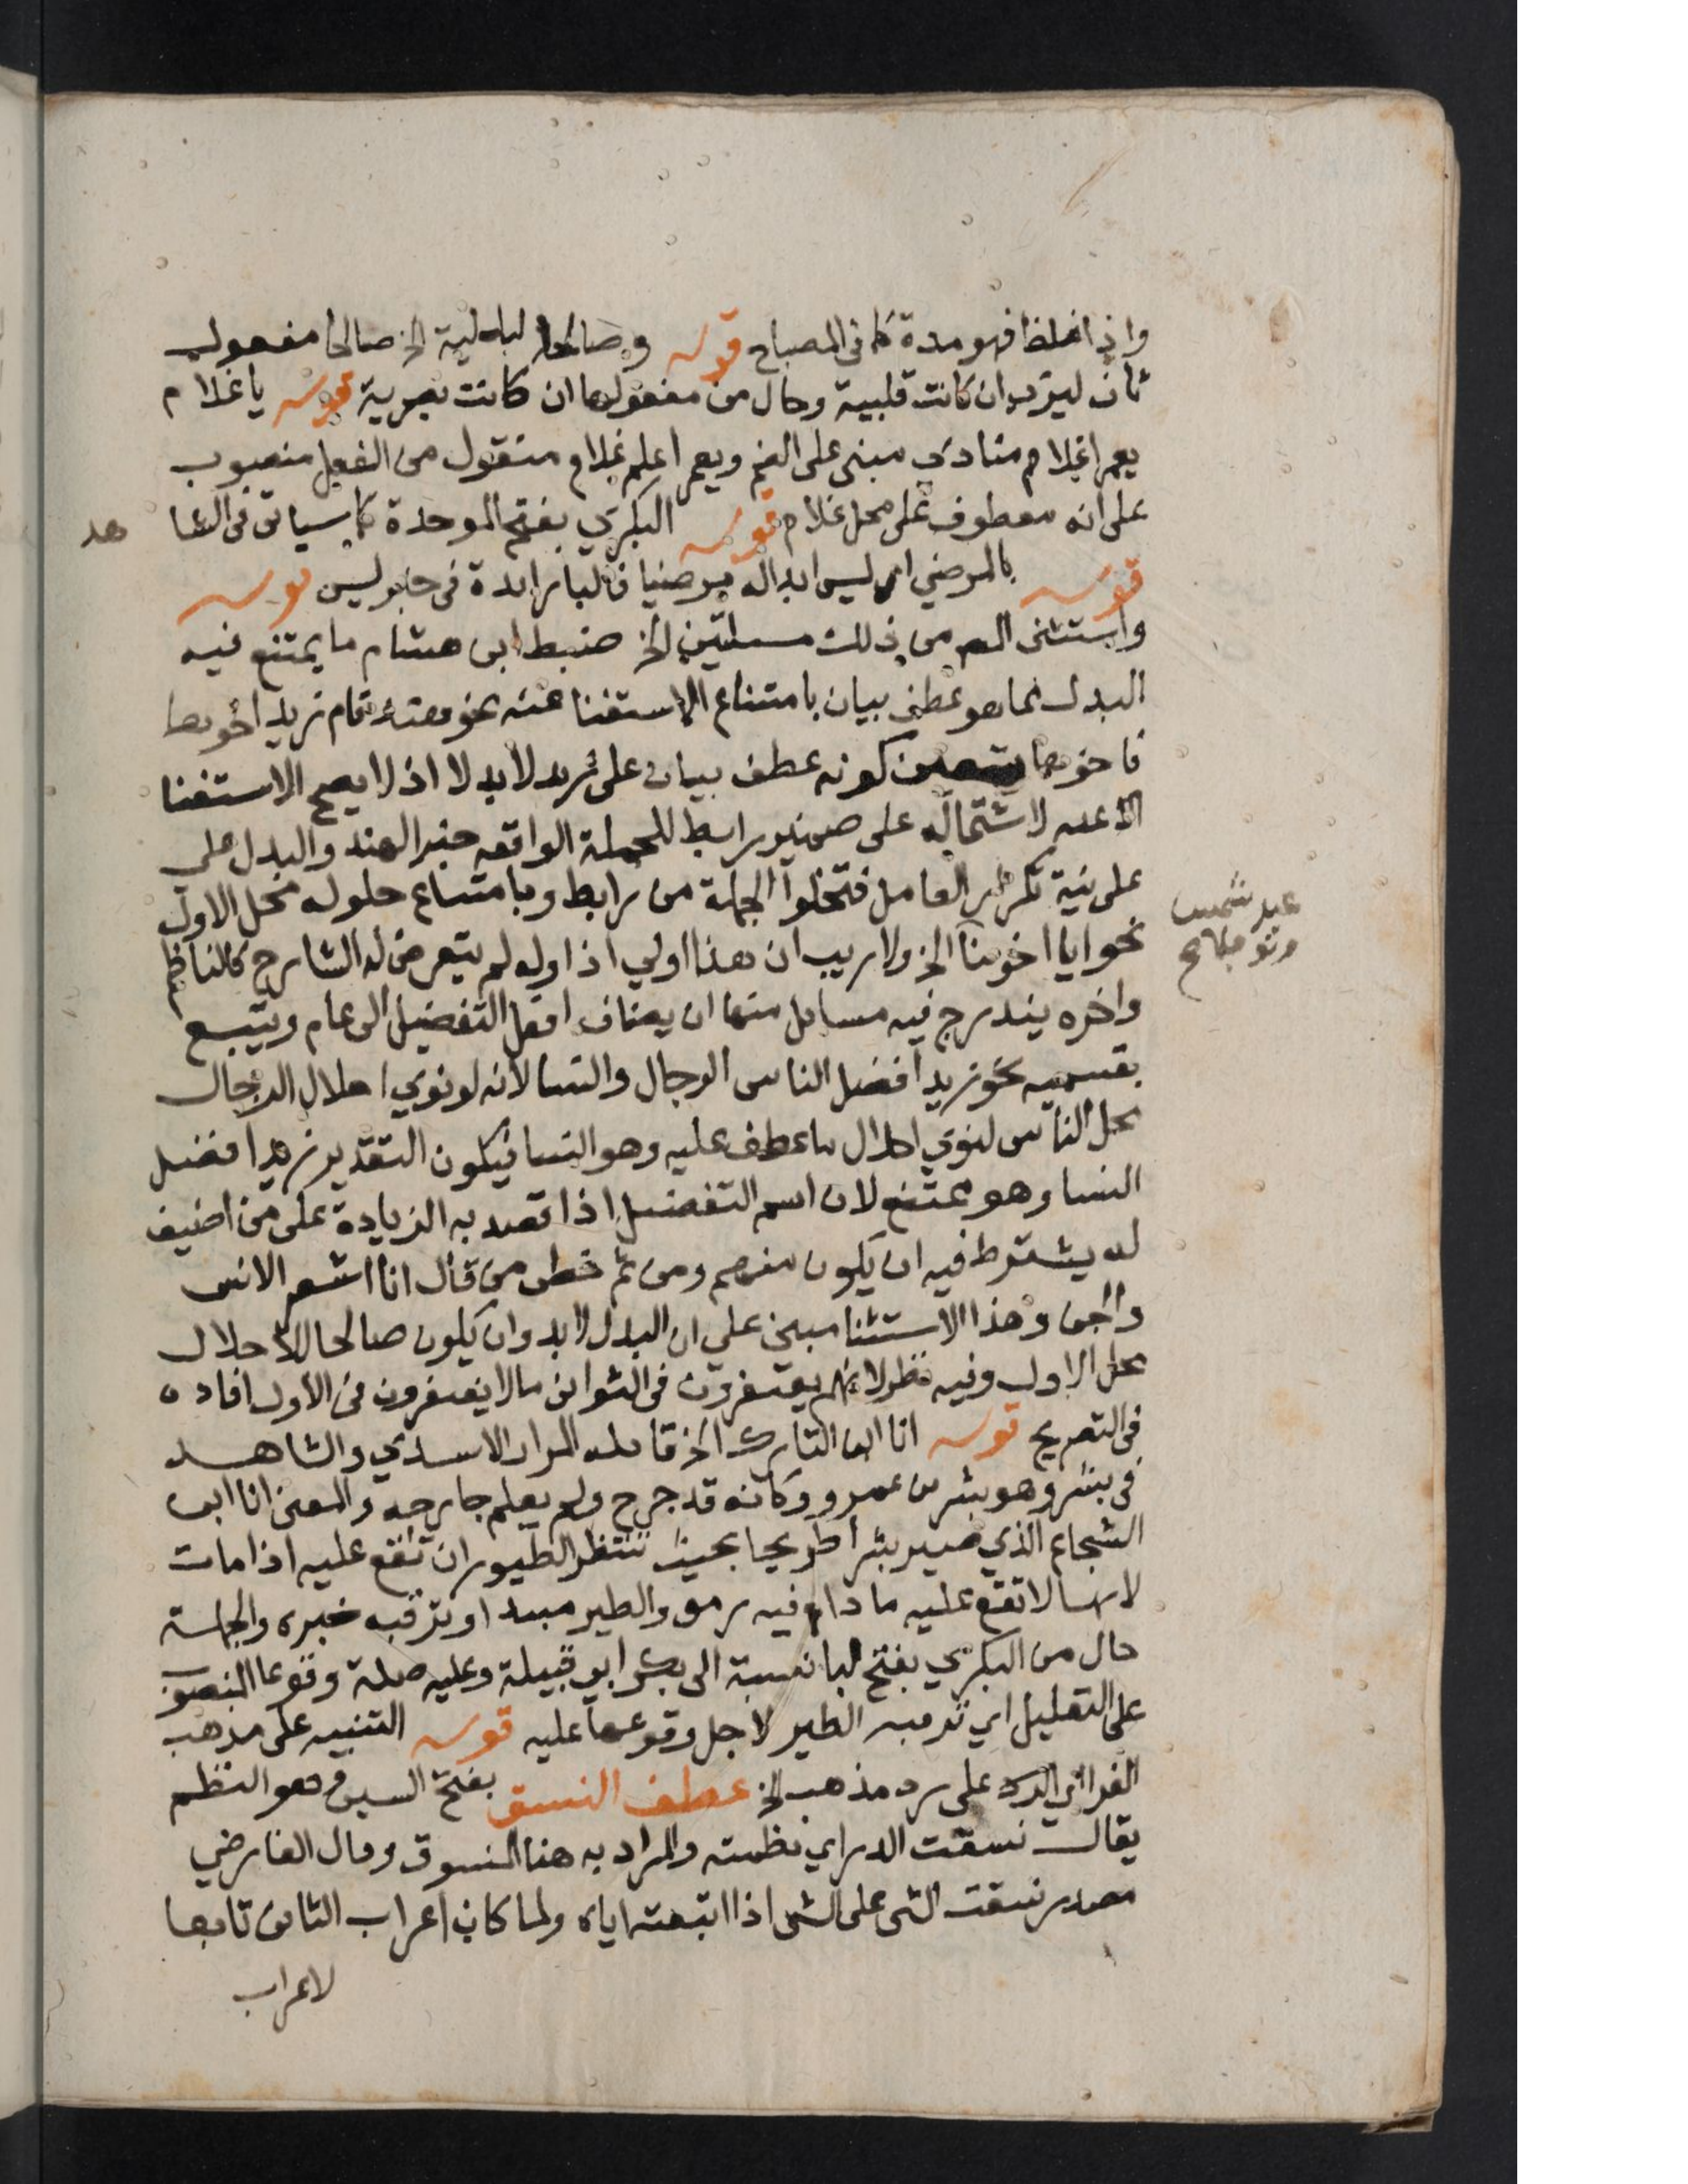 واذا غلظ فهو مدة كما في المصباح قوله وصالحا لبدلية الخ صالحا مفعول
ثان ليرى ان كانت قلبية وحال من مفعولها ان كانت بصرية قوله يا غلام
يعمرا غلام منادي مبنى على الضم ويعمرا علم غلام منقول من الفعل منصوب
على انه معطوف على محل غلام قوله البكري بفتح الموحدة كما سياتي في الشا
هد
قوله بالمرضي اي ليس ابداله مرضيا فالبا زايدة في خبر ليس قوله
واستثنى المص من ذلك مسئلتين الخ ضبط ابن هشام ما يمتنع فيه
البدل مما هو عطف بيان بامتناع الاستغنا عنه نحو هند قام زيد اخوها
فاخوها يتعين كونه عطف بيان على زيد لا بدلا اذ لا يصح الاستغنا
عنه لاشتماله على ضمير رابط للجملة الواقعه خبرا لهند والبدل على
على نية تكرار العامل فتخلوا الجملة من رابط وبامتناع حلوله محل الاول
نحو ايا اخوينا الخ ولا ريب ان هذا اولي اذ اوله لم يتعرض له الشارح كالناظم
عبد شمس
ونوفلا صح
واخره يندرج فيه مسايل منها ان يضاف افعل التفضيل الى عام ويتبع
بقسميه نحو زيد افضل الناس الرجال والنسا لانه لو نوي احلال الرجال
محل الناس لنوي احلال ما عطف عليه وهو النسا فيكون التقدير زيد افضل
النسا وهو ممتنع لان اسم التفضيل اذا قصد به الزيادة على من اضيف
له يشترط فيه ان يكون منهم ومن ثم خطى من قال انا اشعر الانس
والجن وهذا الاستثنا مبنى على ان البدل لا بد وان يكون صالحا للاحلال
محل الاول وفيه نظر لانهم يغتفرون في الثواني ما لا يغتفرون في الأول افاده
في التصريح قوله انا ابن التارك الخ قائله المرار الاسدي والشاهد
في بشر وهو بشر بن عمرو وكانه قد جرح ولم يعلم جارحه والمعنى انا ابن
الشجاع الذي صير بشرا طريحا بحيث تنتظر الطيور ان تقع عليه اذا مات
لانها لا تقع عليه ما دام فيه رمق والطير مبتدا وترقبه خبره والجملة
حال من البكري بفتح البا نسبة الى بكر ابو قبيلة وعليه صلة وقوعا المنصوب
على التعليل اي ترقبه الطير لاجل وقوعها عليه قوله التنبيه على مذهب
الفرا اي الرد على مذهب الخ عطف النسق بفتح السين وهو النظم
يقال نسقت الدر اي نظمته والمراد به هنا المنسوق وقال الفارضي
مصدر نسقت الشى على الشى اذا اتبعته اياه ولما كان اعراب الثاني تابعا
لاعراب